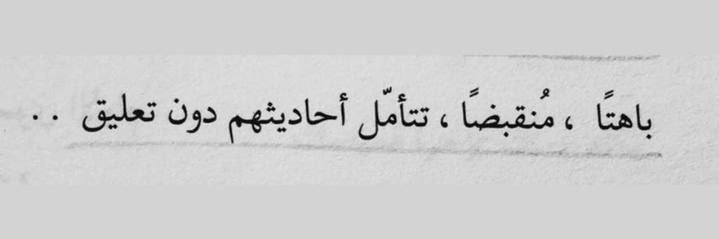 باهتًا ، مُنقبضًا ، تتأمّل أحاديثهم دون تعليق . .